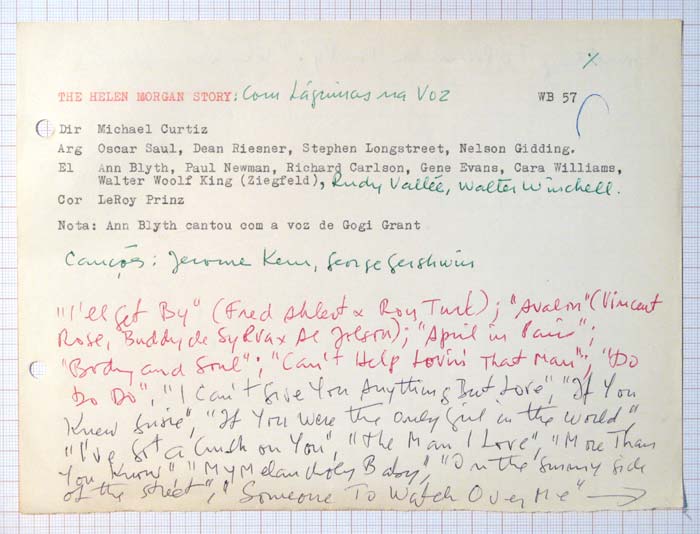 %
THE HELEN MORGAN STORY: Com Lágrimas na Voz WB 57
Dir Michael Curtiz
Arg Oscar Saul, Dean Riesner, Stephen Longstreet, Nelson Gidding.
El Ann Blyth, Paul Newman, Richard Carlson, Gene Evans, Cara Williams,
Walter Woolf King (Ziegfeld), Rudy Vallée, Walter Winchell.
Cor LeRoy Prinz
Nota: Ann Blyth cantou com a voz de Gogi Grant
Canções: Jerome Kern, George Gershwin
"I'll Get By" (Fred Ahlert x Roy Turk); "Avalon" (Vincent
Rose, Buddy de Sylva x Al Jolson); "April in Paris";
"Body and Soul"; "Can't Help Lovin' That Man"; "Do
Do Do", "I Can't Give You Anything But Love", "If You
Knew Susie", "If You Were the Only Girl in the World",
"I've Got a Crush on You", "The Man I Love", "More Than
You Know" "My Melancholy Baby", "On the Sunny side
of the street", "Someone To Watch Over Me" →